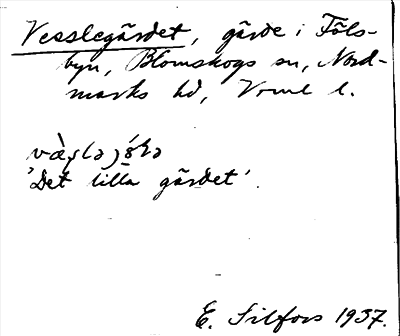 Vesslegärdet, gärde i Töls-
byn, Blomskogs sn, Nord-
marks hd, Vrml l.
'Det lilla gärdet'.
E. Silfors 1937.